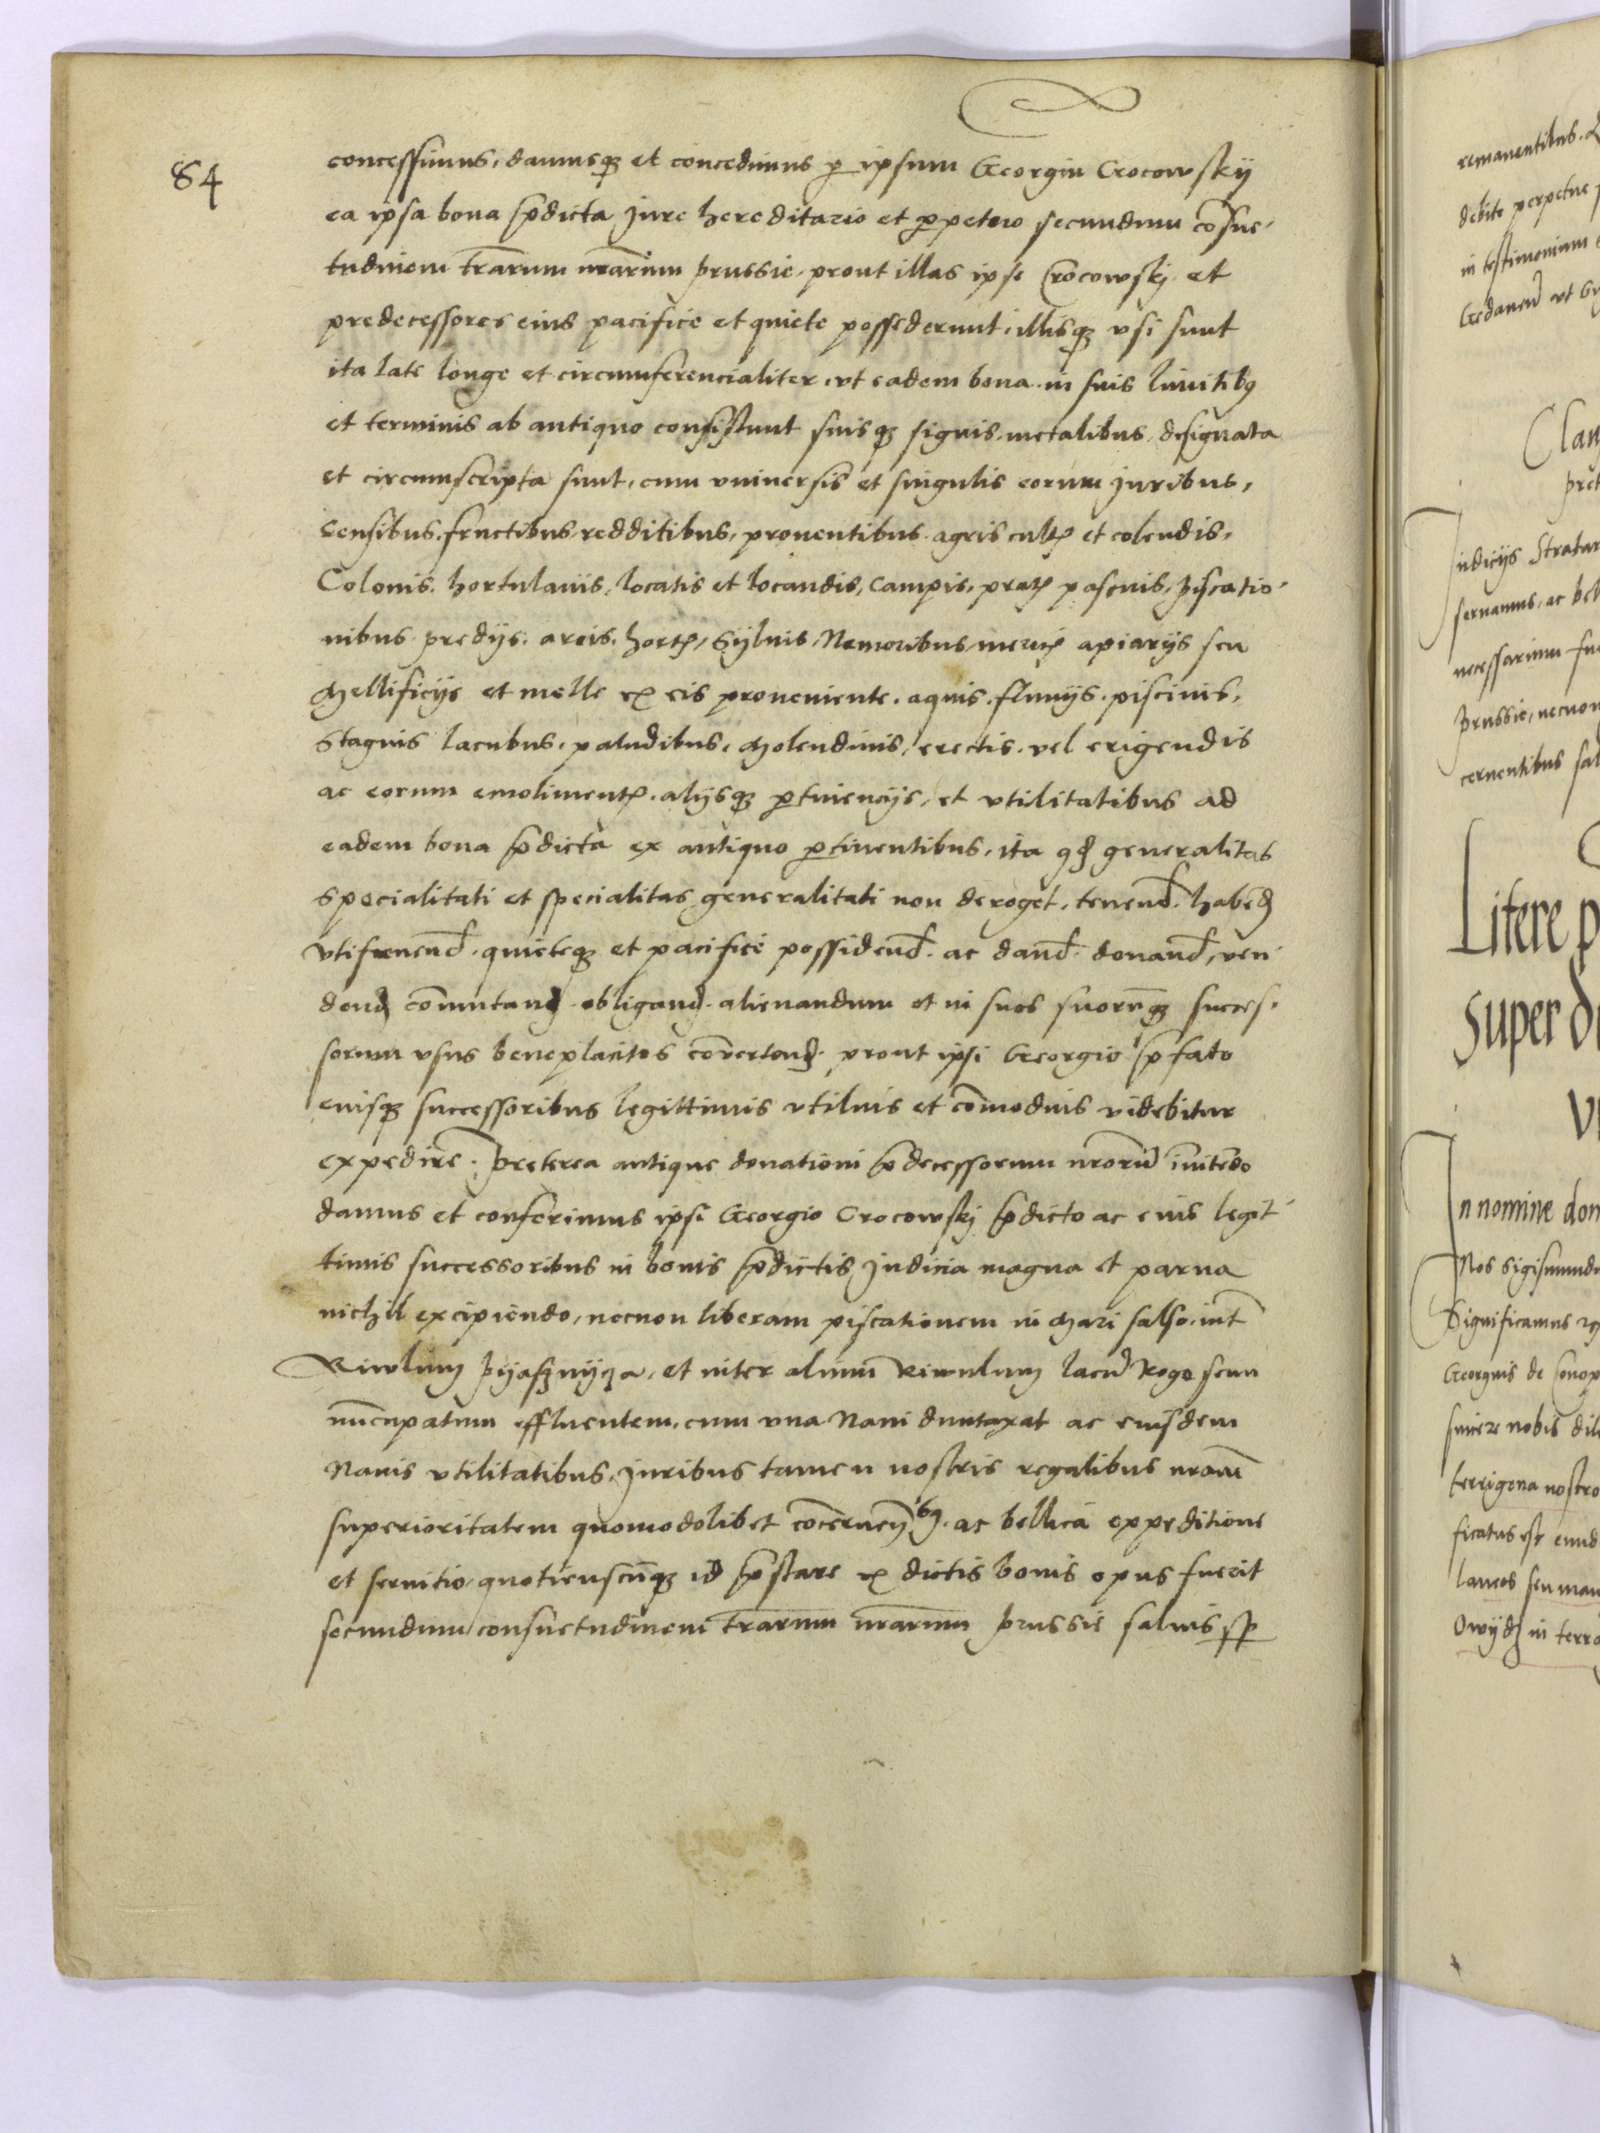 84
concessimus, damusq et concedimus p ipsum Georgiu Crocowskij
ea ipsa bona pdicta Jure hereditario et ppetuo secundum cosue-
tudinem trarum nrarum prussie, prout illas ipse Crocowskj et
predecessores eius pacifice et quiete possederunt, illisq vsi sunt
ita late longe et circumferencialiter, vt eadem bona in suis limitibq
et terminis ab antiquo consistunt suisq signis, metalibus, designata
et circumscripta sunt, cum vniuersis et singulis eorum Juribus,
Censibus, fructibus redditibus, prouentibus agris cult et colendis,
Colonis, hortulanis, locatis et locandis, Campis, prat pascuis, piscatio-
nibus predijs, areis, hort, Syluis, Nemoribus, meric apiarijs seu
Mellificijs et melle ex eis proueniente, aquis, fluuijs, piscinis,
Stagnis lacubus, paludibus, Molendinis, erectis, vel erigendis
ac eorum emoliment, alijsq ptinencijs, et vtilitatibus ad
eadem bona pdicta ex antiquo ptinentibus, ita qd generalitas
specialitati et specialitas generalitati non deroget, tenend. habend
vtifruend. quieteq et pacifice possidend. ac dand. donand, ven
dend commutand obligand. alienandum et in suos suorumq succes-
sorum vsus beneplacitos couertend. prout ipsi Georgio pfato
eiusq successoribus legittimis vtilius et comodius videbitur
expedire. Preterea antique donationi pdecessorum nrorum initedo
damus et conferimus ipsi Georgio Crocowskj pdicto ac eius legit-
timis successoribus in bonis pdictis Judicia magna et parua
nichil excipiendo, necnon liberam piscationem in Mari salso, int
Riwlum pijasznijcza, et inter alium Riwulum lacu Rogo seuu
nucupatum effluentem, cum vna Naui duntaxat ac eiusdem
Nauis vtilitatibus, Juribus tamen nostris regalibus nram
superioritatem quomodolibet cocernen tibq. ac bellica expeditione
et seruitio, quotienscuq id pstare ex dictis bonis opus fuerit
secundum consuetudinem trarum nrarum prussie saluis sp
remanentibus.
debite perpetue
in testimonium
Gedanen vt
Clau
pret
Indicijs Stratar
seruamus, ac bel
necessarium fu
prussie, necnon
cernentibus sal
Litere p
super d
In nomine dom
Nos Sigismund
Significamus
Georgius de Conop
sincere nobis dil
terrigena nostro
ficatus est eund
laneos seu man
Owijdz in terra